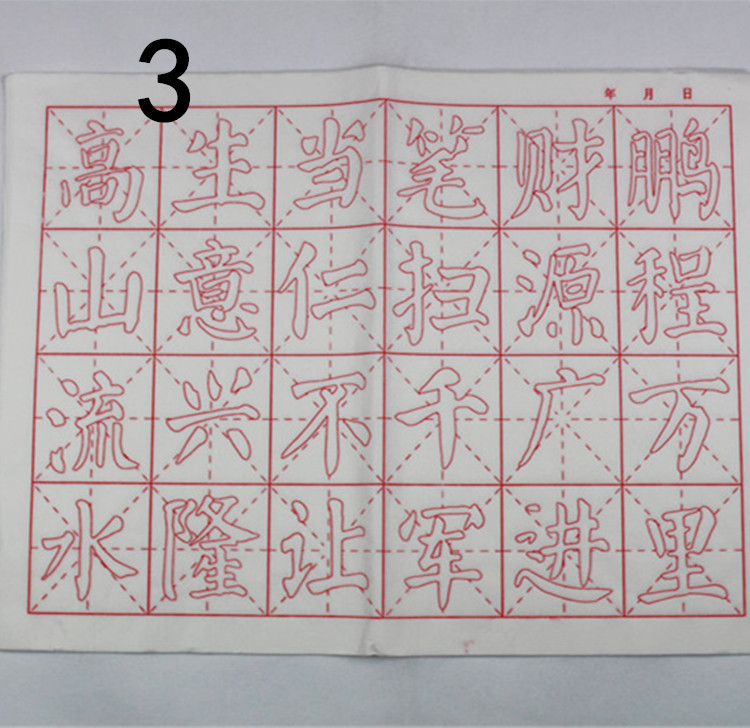 3
年 月 日
高 生 当 笔 财 鹏
山 意 仁 扫 源 程
流 兴 不 千 广 万
水 隆 让 军 进 里